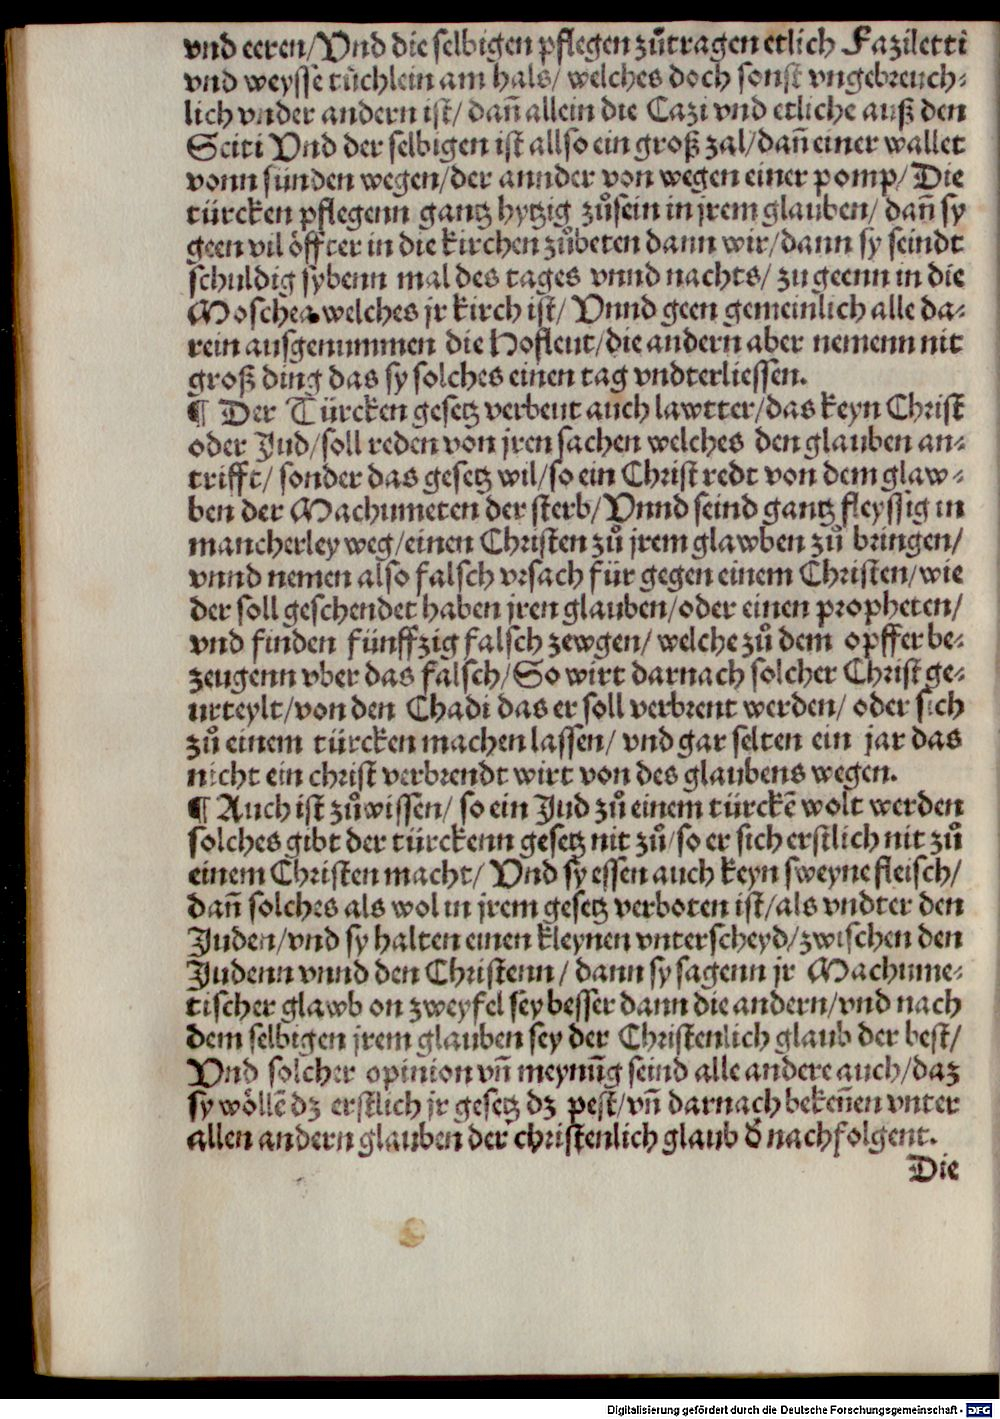 vnd eeren/Vnd die selbigen pflegen zůtragen etlich Faziletti
vnd weysse tüchlein am hals/ welches doch sonst vngebreuch⸗
lich vnder andern ist/ dañ allein die Cazi vnd etliche auß den
Sciti Vnd der selbigen ist allso ein groß zal/dañ einer wallet
vonn sünden wegen/der annder von wegen einer pomp/ Die
türcken pflegenn gantz hytzig zůsein in jrem glauben/ dañ sy
geen vil öffter in die kirchen zůbeten dann wir/dann sy seindt
schuldig sybenn mal des tages vnnd nachts/ zu geenn in die
Moschea welches jr kirch ist/ Vnnd geen gemeinlich alle da⸗
rein ausgenummen die Hofleut/die andern aber nemenn nit
groß ding das sy solches einen tag vndterliessen.
¶ Der Türcken gesetz verbeut auch lawtter/das keyn Christ
oder Jud/soll reden von jren sachen welches den glauben an⸗
trifft/ sonder das gesetz wil/so ein Christ redt von dem glaw⸗
ben der Machumeten der sterb/Vnnd seind gantz fleyssig in
mancherley weg/einen Christen zů jrem glawben zů bringen/
vnnd nemen also falsch vrsach für gegen einem Christen/wie
der soll geschendet haben jren glauben/oder einen propheten/
vnd finden fünffzig falsch zewgen/ welche zů dem opffer be⸗
zeugenn vber das falsch/So wirt darnach solcher Christ ge⸗
urteylt/von den Chadi das er soll verbrent werden/ oder sich
zů einem türcken machen lassen/ vnd gar selten ein jar das
nicht ein christ verbrendt wirt von des glaubens wegen.
¶ Auch ist zůwissen/ so ein Jud zů einem türckē wolt werden
solches gibt der türckenn gesetz nit zů/so er sich erstlich nit zů
einem Christen macht/ Vnd sy essen auch keyn sweyne fleisch/
dañ solches als wol in jrem gesetz verboten ist/als vndter den
Juden/vnd sy halten einen kleynen vnterscheyd/zwischen den
Judenn vnnd den Christenn/ dann sy sagenn jr Machume⸗
tischer glawb on zweyfel sey besser dann die andern/vnd nach
dem selbigen jrem glauben sey der Christenlich glaub der best/
Vnd solcher opinion vñ meynūg seind alle andere auch/daz
sy wöllē dz erstlich jr gesetz dz pest/vñ darnach bekeñen vnter
allen andern glauben der christenlich glaub d̄ nachfolgent.
Die
Digitalisierung gefördert durch die Deutsche Forschungsgemeinschaft - DFG